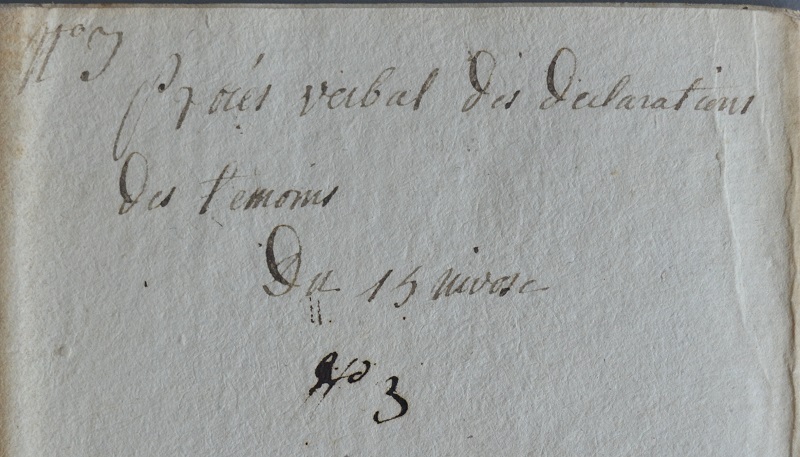 N° 3
Procés verbal des declarations
des temoins
Du 15 nivose
N° 3